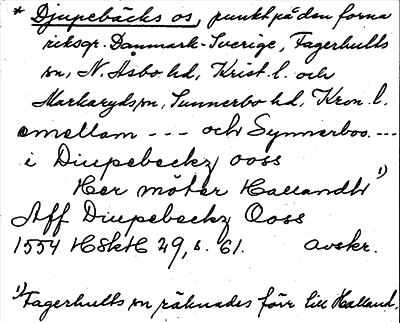 * Djupebäcks os, punkt på den forna
riksgr. Danmark-Sverige, Fagerhults
sn, N. Åsbo hd, Krist. l. och
Markaryds sn, Sunnerbo hd, Kron. l.
emellam --- och Synnerboo. ---
i Diupebeckz ooss
Her möter Hallandh 1)
Aff Diupebeckz Ooss
1554 HSkH 29, s. 61. avskr.
1) Fagerhults sn räknades förr till Halland.